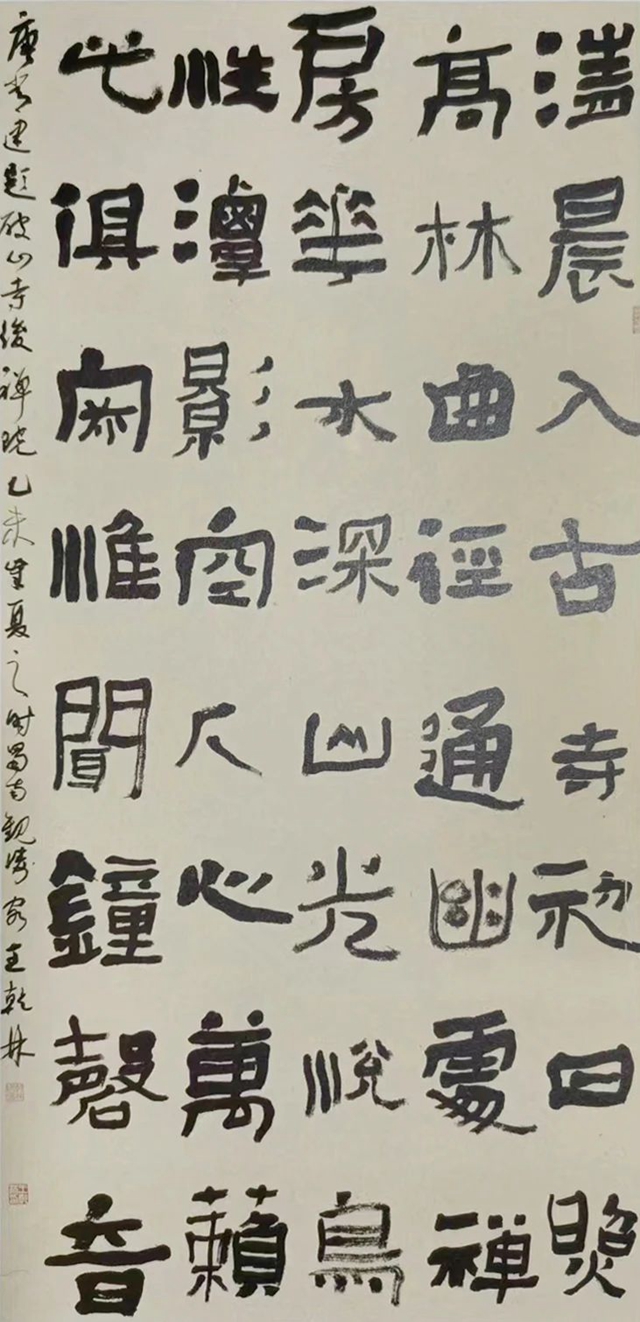 清晨入古寺初日照
高林曲徑通幽處禪
房華木深山光悅鳥
性潭影空人心萬籟
此俱寂惟聞鐘磬音
唐常建題破山寺後禪院乙未夏之時蜀南觀濤客王乾林